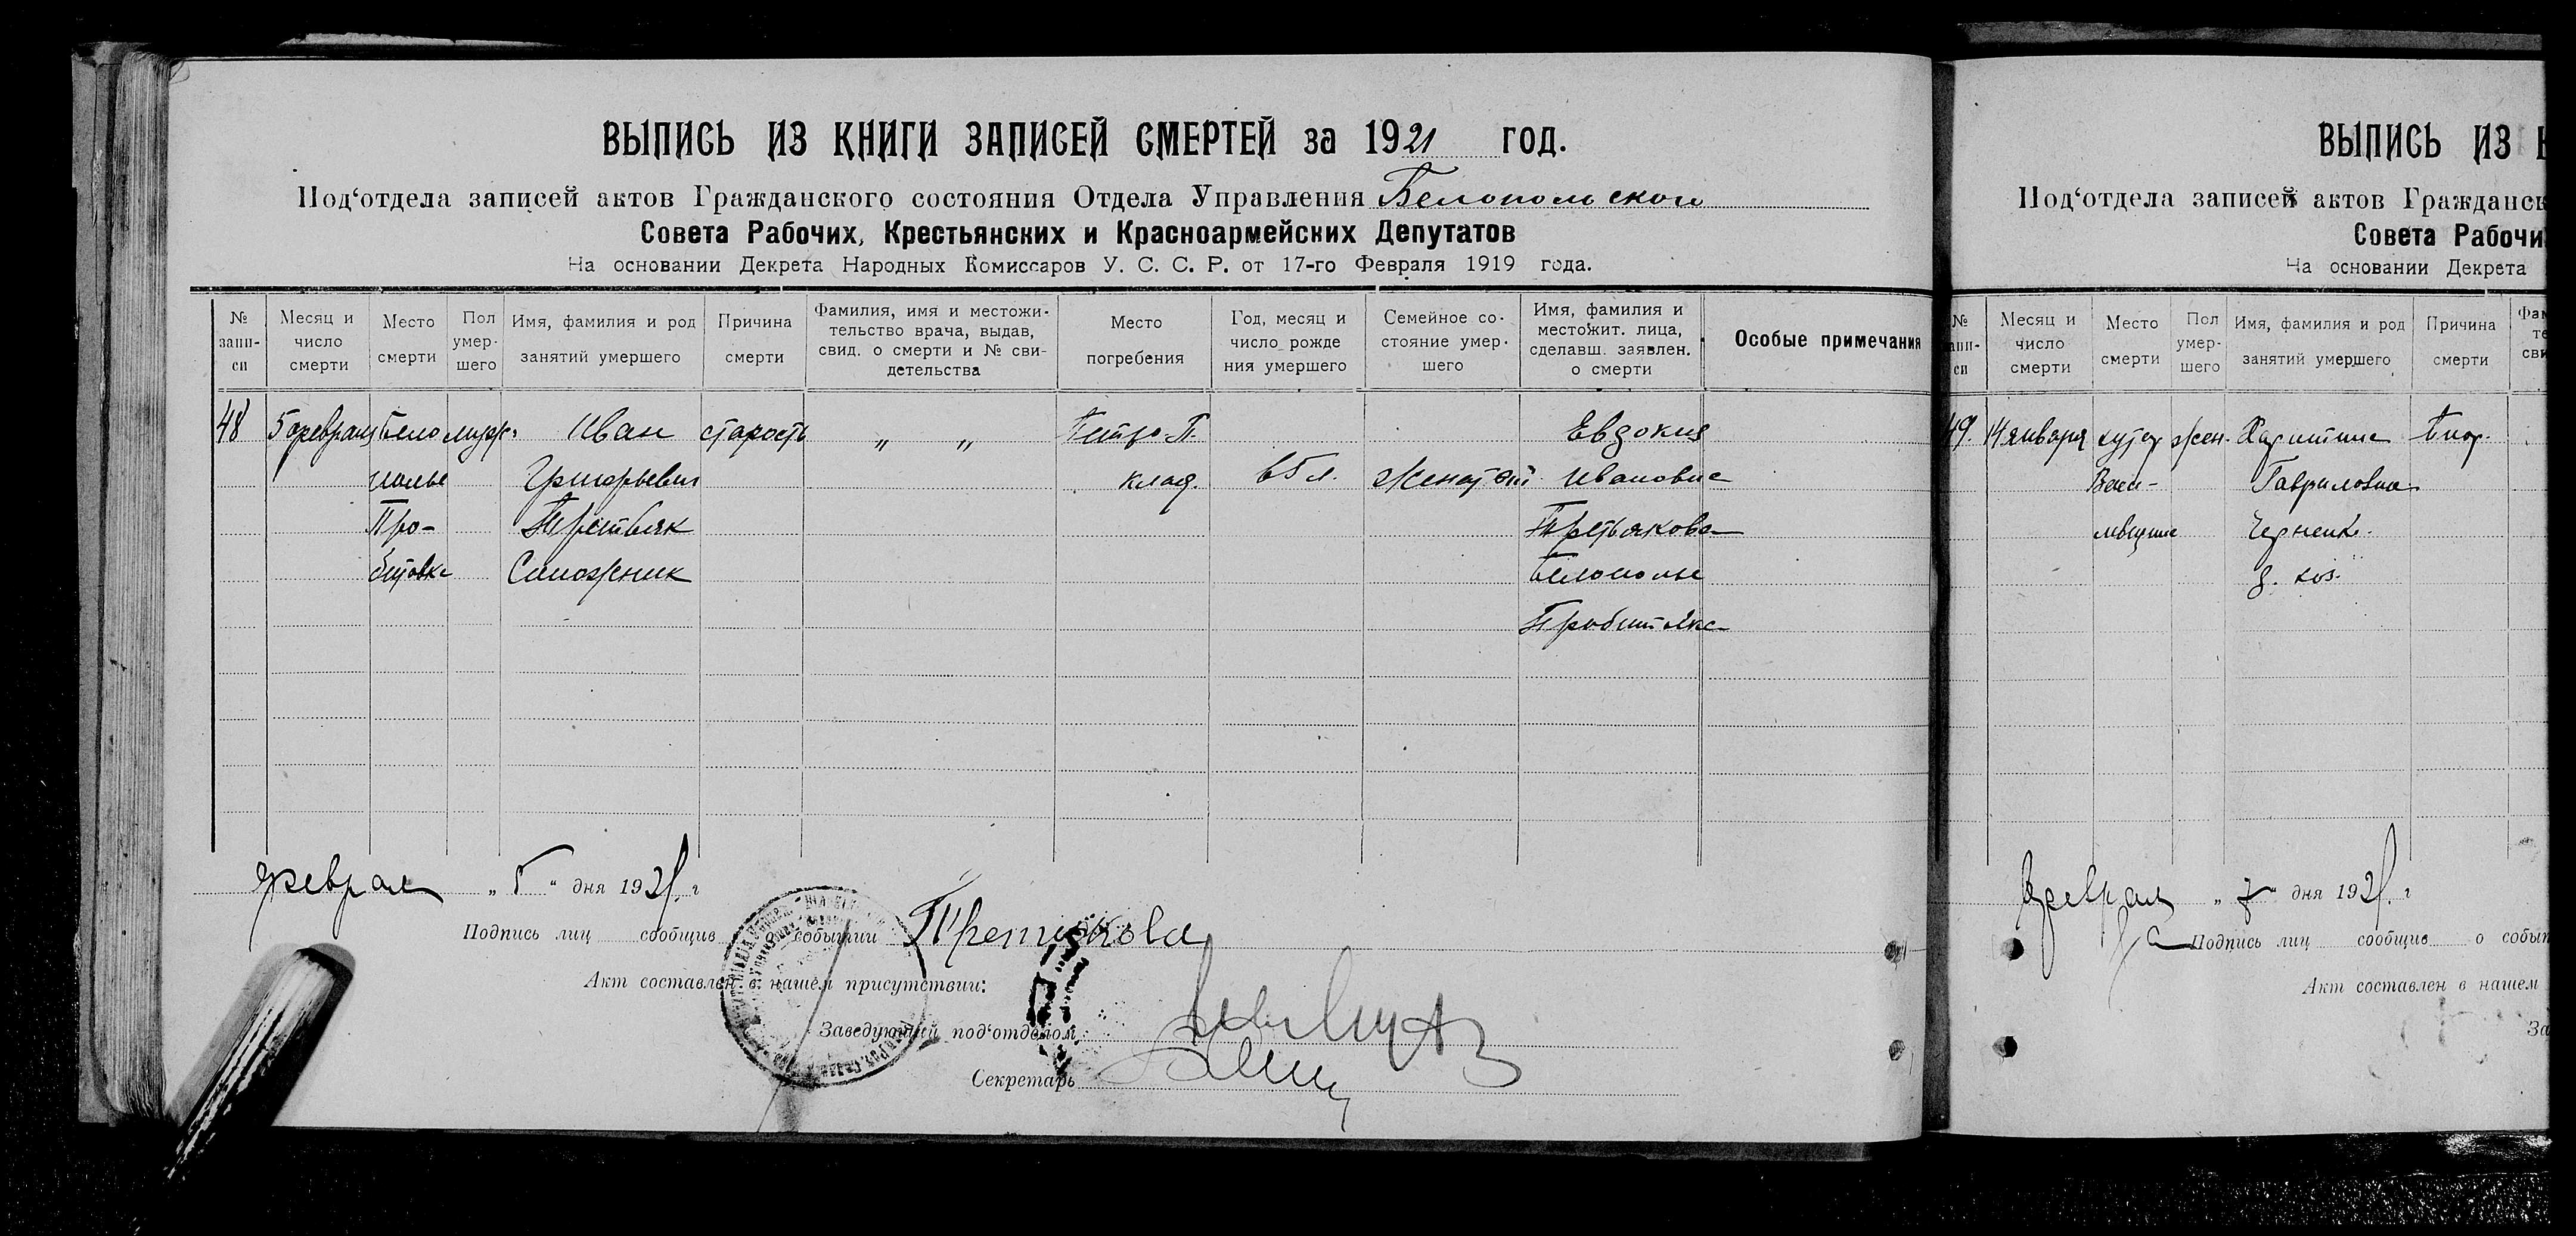 ВЫПИСЬ ИЗ КНИГИ ЗАПИСЕЙ СМЕРТЕЙ за 1921 год.
Под‘отдела записей актов Гражданского состояния Отдела Управления Белопольского
Совета Рабочих, Крестьянских и Красноармейских Депутатов
На основании Декрета Народных Комиссаров У. С. С. Р. от 17-го Февраля 1919 года.
№ запи-
си
Месяц и
число
смерти
Место
смерти
Пол
умер-
шего
Имя, фамилия и род
занятий умершего
Причина
смерти
Фамилия, имя и местожи-
тельство врача, выдав,
свид. о смерти и № сви-
детельства
Место
погребения
Год, месяц и
число рожде
ния умершего
Семейное со-
стояние умер-
шего
Имя, фамилия и
местожит. лица,
сделавш. заявлен.
о смерти
Особые примечания
48
5 февраля
Бело
полье
Про-
муж.
Иван
Григорьевич
Третьяк
Сапожник
старость
„ „
Петро-П.
клад.
65 л.
Женатый
Евдокия
Ивановна
Третьякова
Белополье
февраля „5“ дня 1921 г
Подпись лиц сообщив о событии Третякова
Акт составлен в нашем присутствии:
Заведующий под‘отделом
Секретарь
ВЫПИСЬ ИЗ
Под‘отдела записей актов Гражданск
Совета Рабочи
На основании Декрета
№
апи-
си
Месяц и
число
смерти
Место
смерти
Пол
умер-
шего
Имя, фамилия и род
занятий умершего
Причина
смерти
49.
14 января
хутор
жен.
Харитина
Гавриловна
Черненко
д. хоз.
февраля „7“ дня 1921 г
Подпись лиц сообщив о событ
Акт составлен в нашем
За